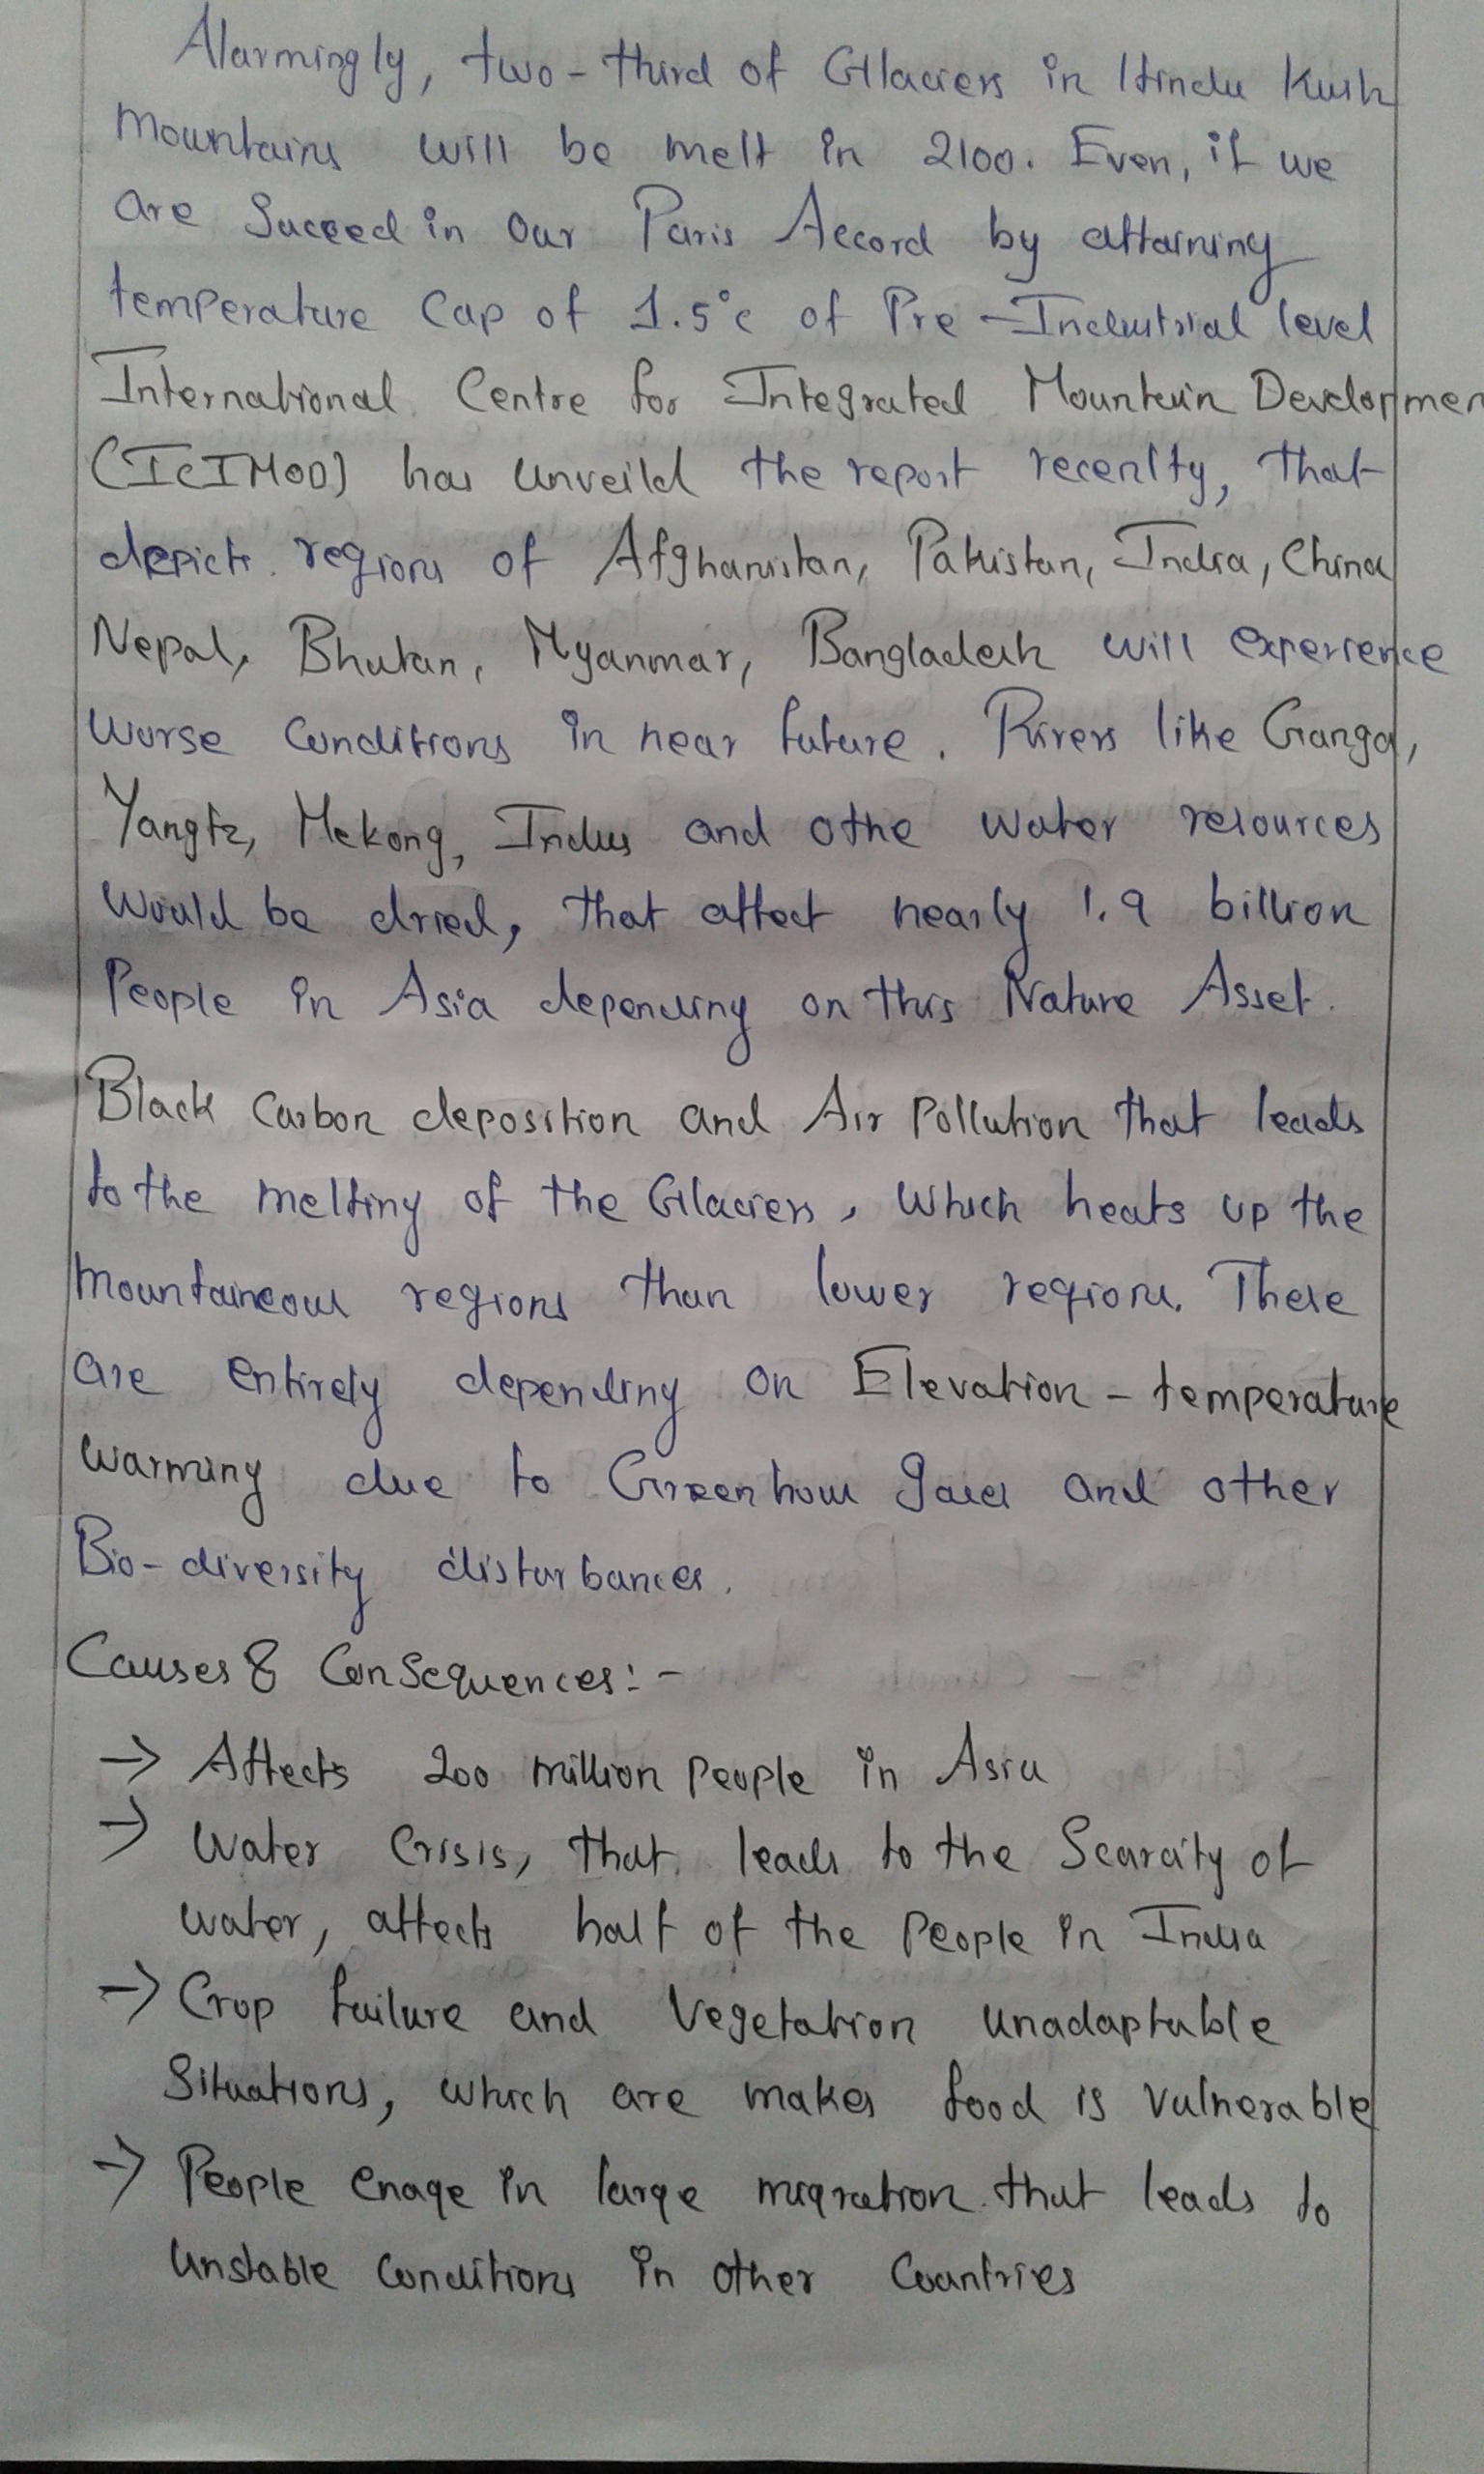 Alarmingly, two-third of Glaciers in Hindu Kush
Mountains will be melt in 2100. Even, if we
are Succeed in our Paris Accord by attaining
temperature Cap of 1.5°c of Pre-Industrial level
International Centre for Integrated Mountain Developmen
(ICIMOD) has unveild the report recenlty, that
depicts regions of Afghanistan, Pakistan, India, China
Nepal, Bhutan, Myanmar, Bangladesh will experience
worse Conditions in near future. Rivers like Ganga,
Yangtz, Mekong, Indus and othe water resources
Would be dried, that affect nearly 1.9 billion
People in Asia depending on this Nature Asset.
Black Carbon deposition and Air Pollution that leads
to the melting of the Glaciers, which heats up the
Mountaineous regions than lower regions. These
are entirely depending on Elevation-temperature
warming due to Greenhouse gases and other
Bio-diversity disturbances.
Causes & Consequences:-
→ Affects 200 million people in Asia
→ Water Crisis, that leads to the Scarcity of
water, affects half of the People in India
→ Crop failure and Vegetation unadaptable
Situations, which are makes food is vulnerable
→ People enage in large migration that leads to
Unstable Conditions in other Countries